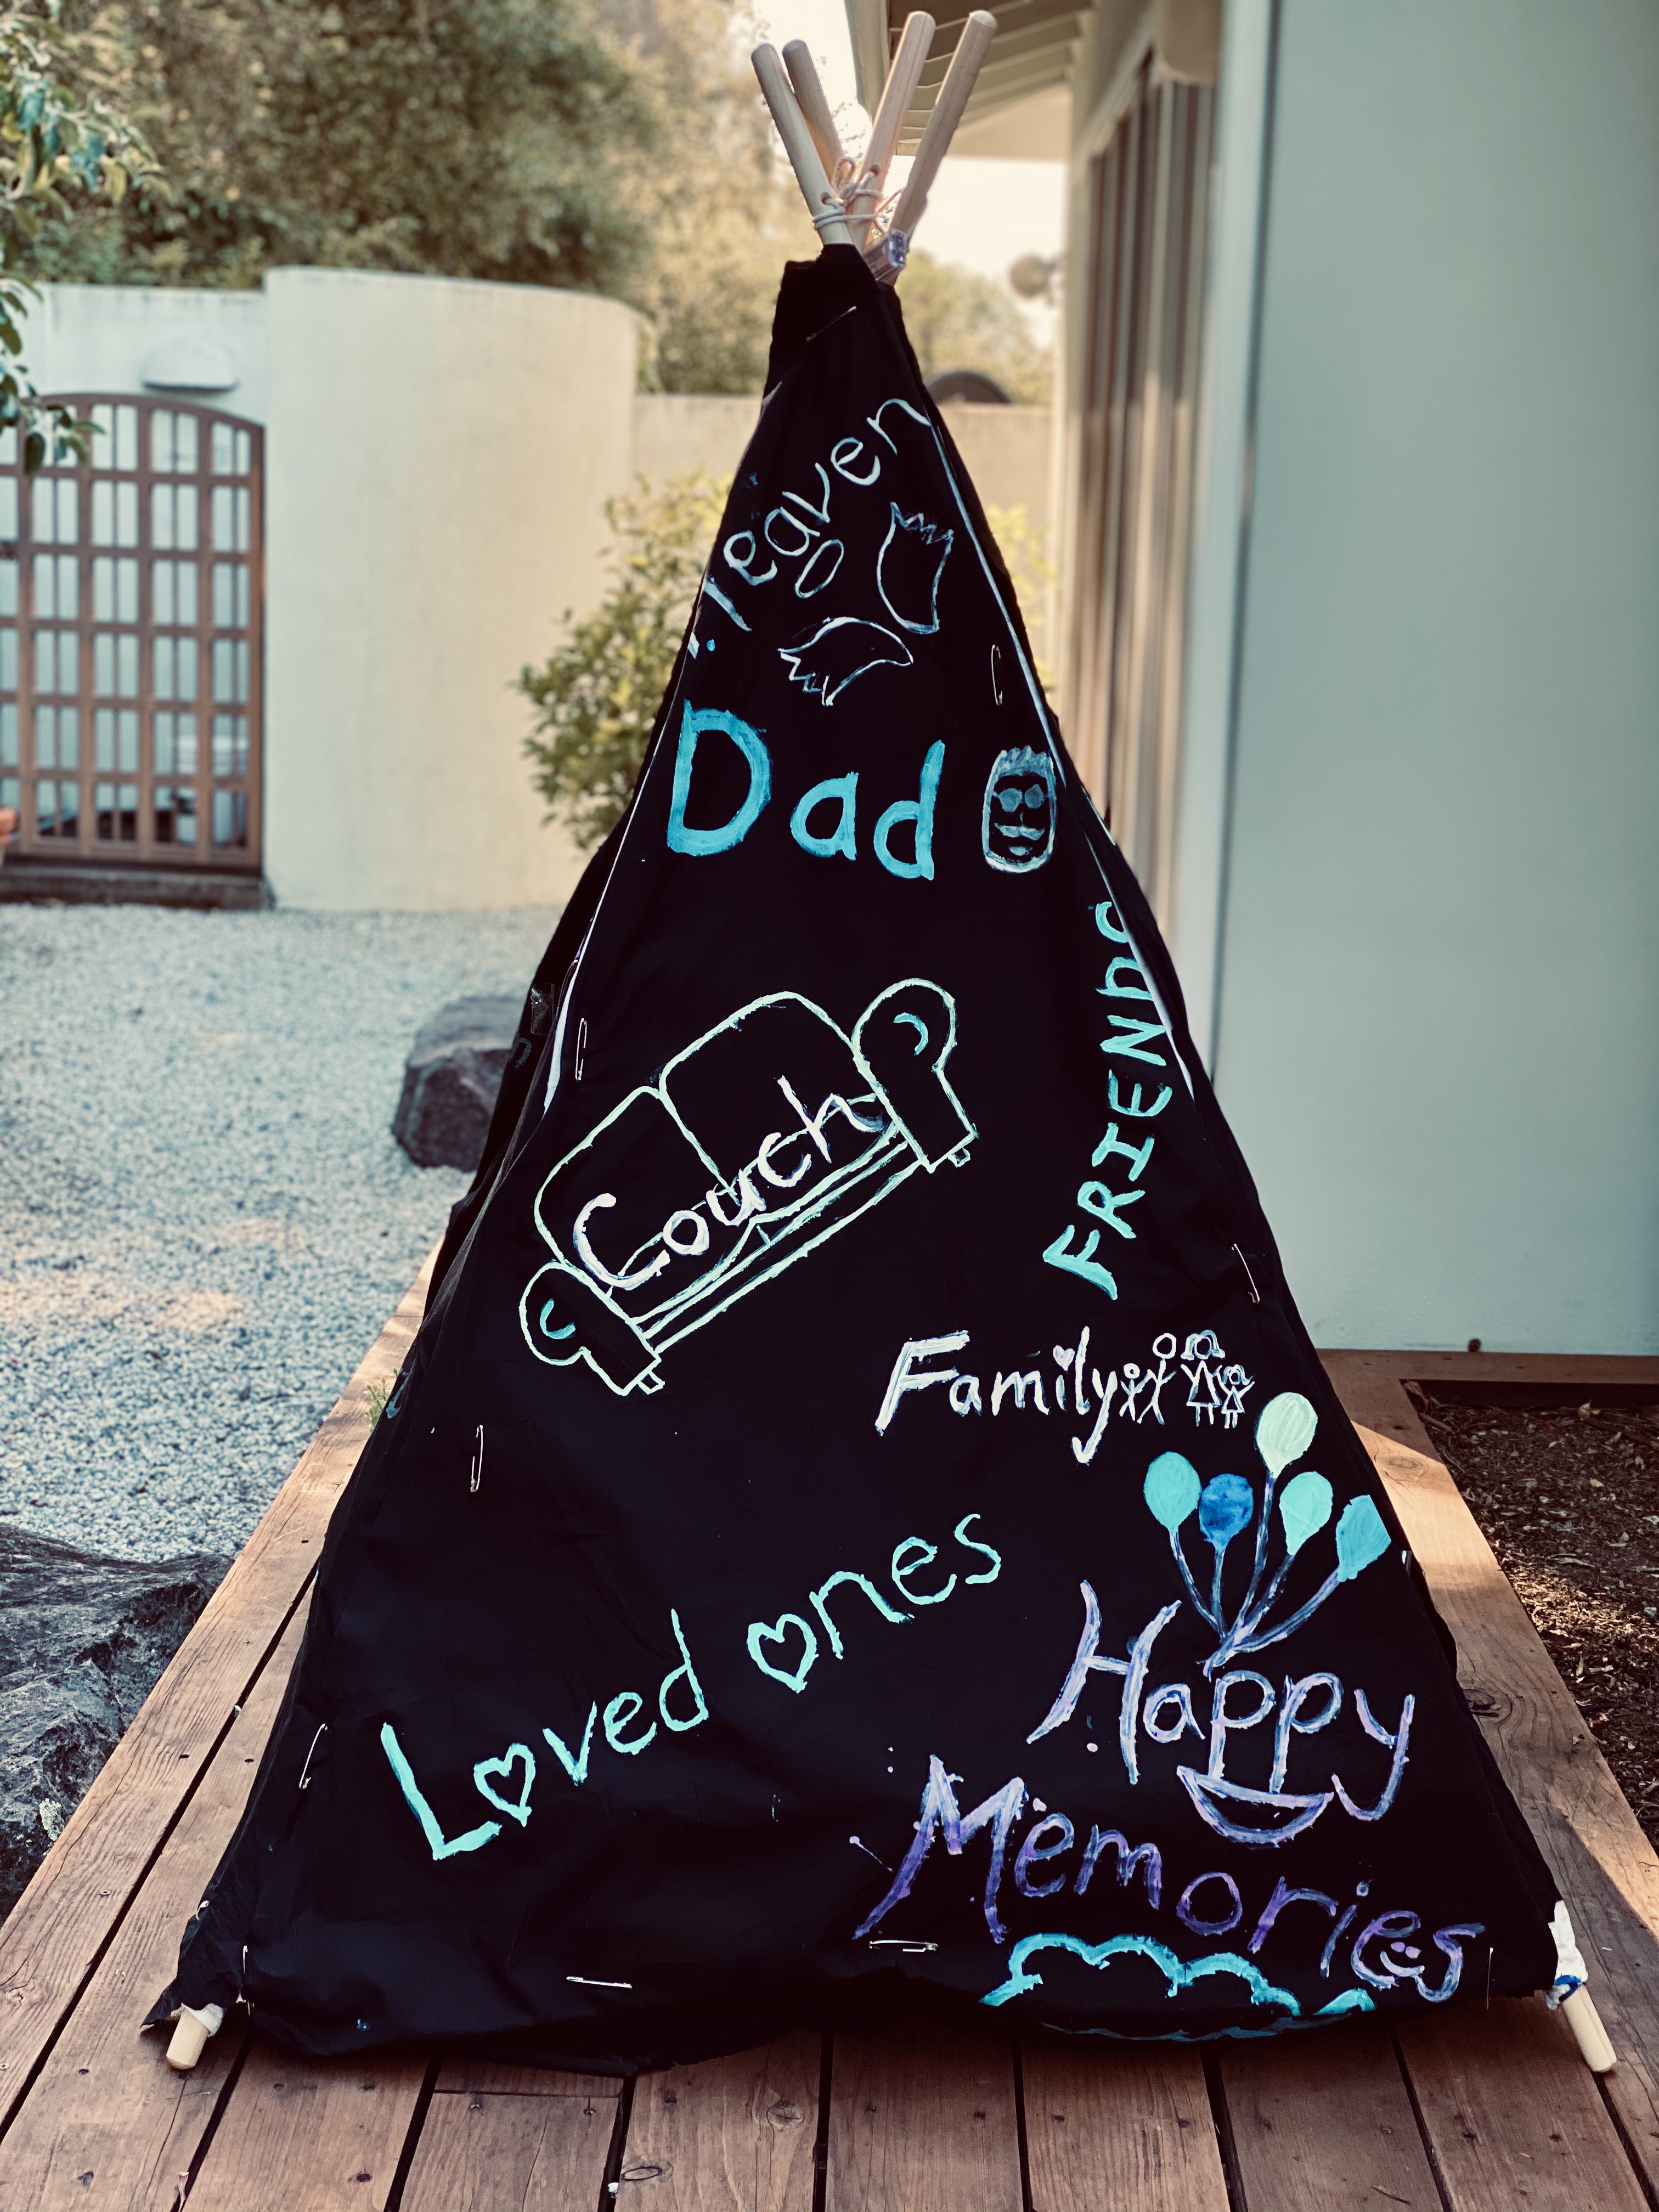 Heaven
Dad
FRIENDS
Couch
Family
Loved ones
Happy
Memories